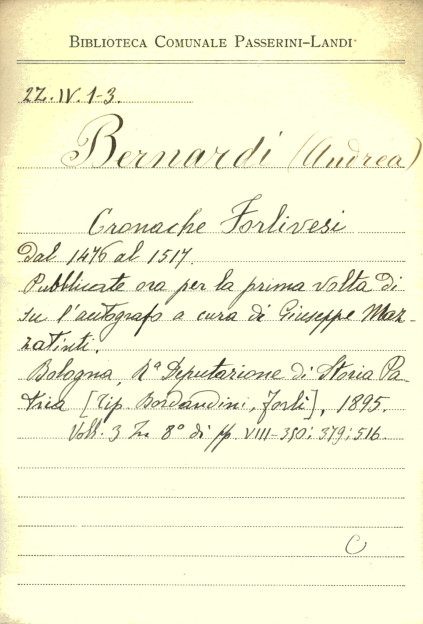 BIBLIOTECA COMUNALE PASSERINI-LANDI
2Z. IV. 1-3.
Bernardi (Andrea)
Cronache Forlivesi
dal 1476 al 1517.
Pubblicate ora per la prima volta di
su l'autografo a cura di Giuseppe Maz-
zatinti.
Bologna, Rª Deputazione di Storia Pa-
tria [Tip. Bordandini, Forlì], 1895.
Voll. 3 in 8º di pp. VIII-350; 379; 516.
C